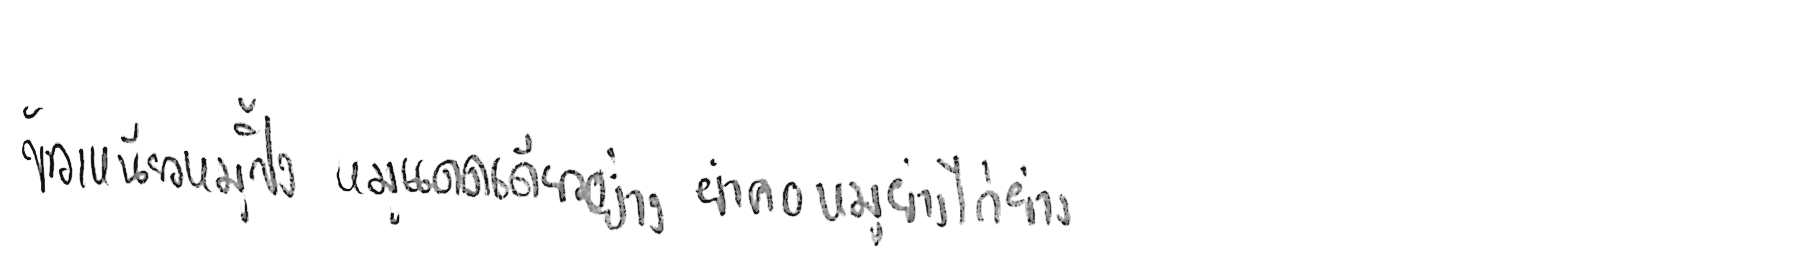 ข้าวเหนียวหมูปิ้ง หมูแดดเดียวย่าง ยำคอหมูย่างไก่ย่าง